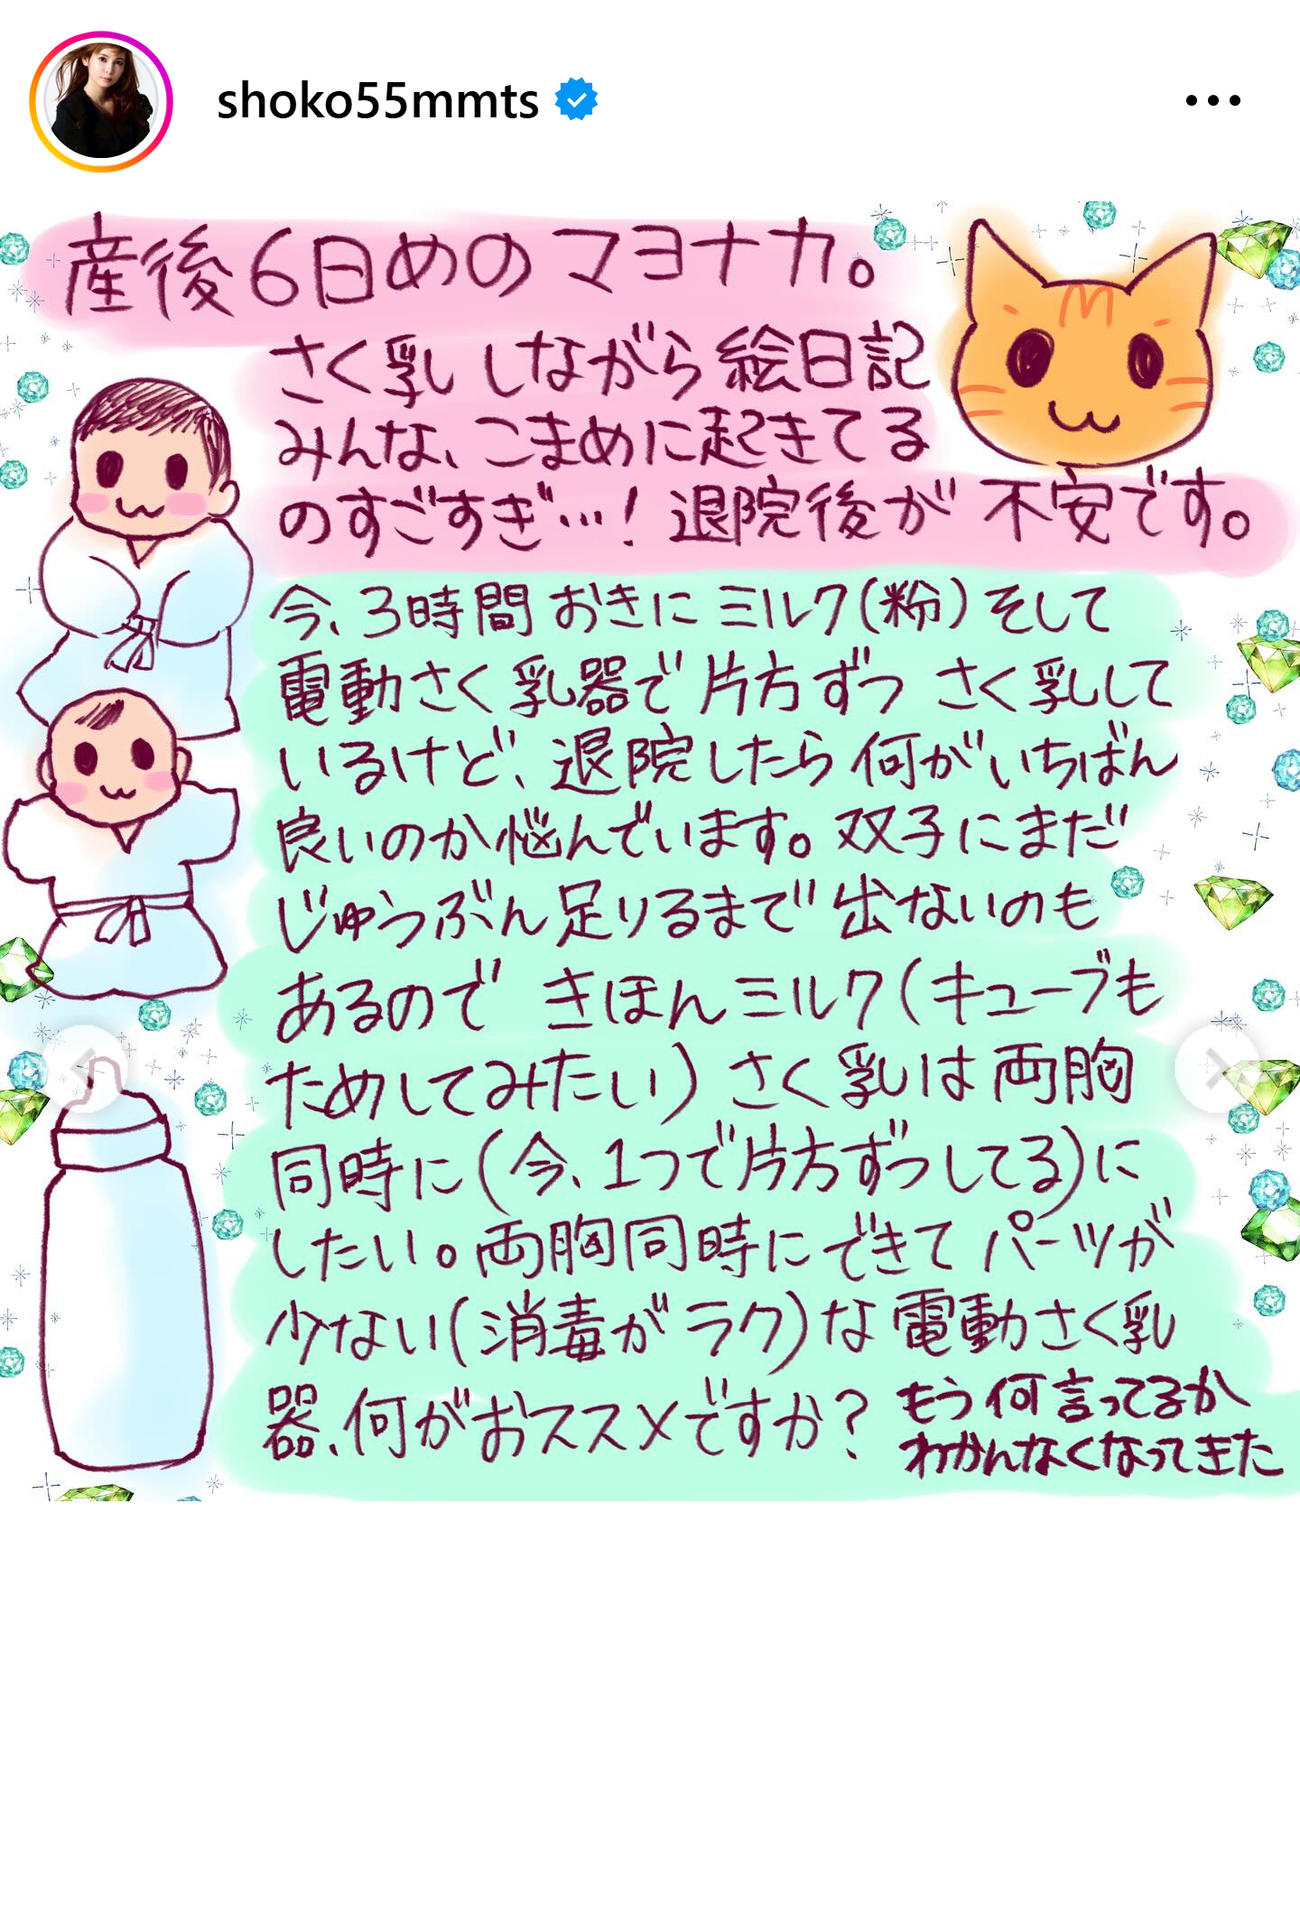 shoko55mmts
産後6日めのマヨナカ。
さく乳しながら絵日記
みんな、こまめに起きてる
のすごすぎ…！退院後が不安です。
今、3時間おきにミルク(粉)そして
電動さく乳器で片方ずつ さく乳して
いるけど、退院したら何がいちばん
良いのか悩んでいます。双子にまだ
じゅうぶん足りるまで出ないのも
あるので きほんミルク(キューブも
ためしてみたい)さく乳は両胸
同時に(今、1つで片方ずつしてる)に
したい。両胸同時にできてパーツが
少ない(消毒がラク)な電動さく乳
器、何がおススメですか？
もう何言ってるか
わかんなくなってきた